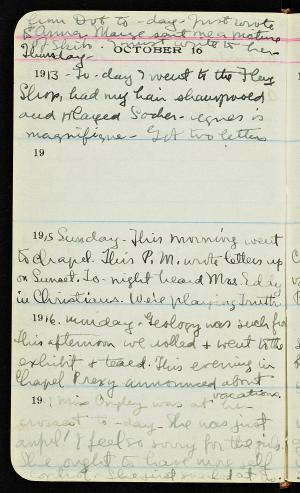 from Dot to-day. Just wrote
to Anna. Marge sent me a picture
of Ship. I must write to her
Thursday-
OCTOBER 16
1913 - To-day I went to the
Shop, had my hair shampooed
and played Soccer. Agnes is
magnifique - Got two letters
19
1915 Sunday - This morning went
to chapel. This P.M. wrote letters up
on Sunset. To-night heard Mrs. Eddy
in Christians. We're playing Truth.
1916. Monday. Geology was such fun
This afternoon we rolled & went to the
exhibit & teaed. This evening in
Chapel Prexy announced about
vacations.
19 Miss was at her
crossest to-day. She was just
awful! I feel so sorry for the
She ought to have more self
control. She first